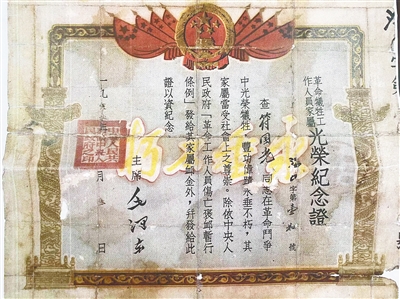 革命犧牲工
作人員家屬
光榮紀念證
字第壹 號
查符國光同志在革命鬥爭
中光榮犧牲,豐功偉蹟永垂不朽,其
家屬當受社會上之尊崇。除依中央人
民政府「革命工作人員傷亡褒卹暫行
條例」發給其家屬卹金外,并發給此
證以資紀念
主席 毛澤東
一九 年 月 日
永垂不朽